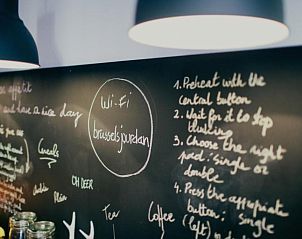 appetit
and have a nice day
Cereals
OH DEER
Wi-Fi
brusselsjourdan
Tea
Coffee
1. Preheat with the
central button
2. Wait for it to stop
blinking
3. Choose the right
pod: single or
double
4. Press the appropriate
button: single
(left) or